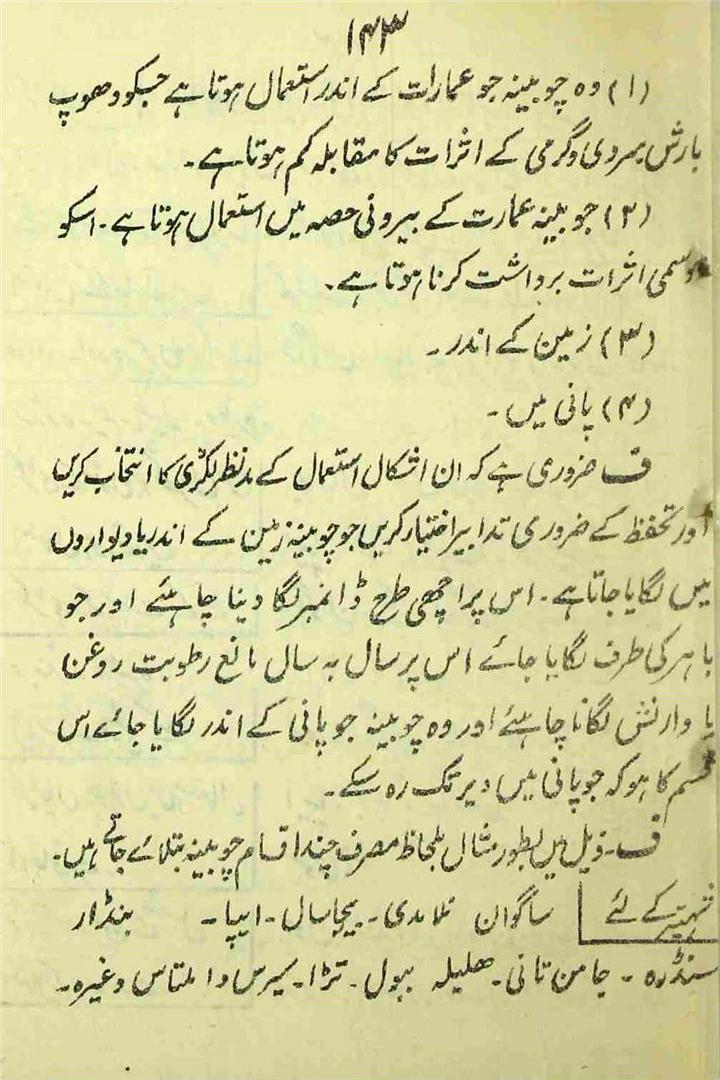 ۱۴۳
(۱) وہ چوبینہ جو عمارات کے اندر استعمال ہوتا ہے جسکو دھوپ
بارش سردی وگرمی کے اثرات کا مقابلہ کم ہوتا ہے۔
(۲) چوبینہ عمارت کے بیرونی حصہ میں استعمال ہوتا ہے۔ اسکو
موسمی اثرات برداشت کرنا ہوتا ہے۔
(۳) زمین کے اندر۔
(۴) پانی میں۔
ف ضروری ہے کہ ان اشکال استعمال کے مدنظر لکڑی کا انتخاب کریں
اور تحفظ کے ضروری تدابیر اختیار کریں جو چوبینہ زمین کے اندر یا دیواروں
میں لگایا جاتا ہے۔ اس پر اچھی طرح ڈانمبر لگا دینا چاہئے اور جو
باہر کی طرف لگایا جائے اس پر سال بہ سال مانع رطوبت روغن
یا وارنش لگانا چاہئے اور وہ چوبینہ جو پانی کے اندر لگایا جائے اس
قسم کا ہو کہ جو پانی میں دیر تک رہ سکے۔
ف۔ ذیل میں بطور مثال بلحاظ مصرف چند اقسام چوبینہ بتلائے جاتے ہیں۔
شہتیر کے لئے ساگوان نلامدی۔ بیجاسال۔ ایپا۔ بنڈار
سنڈرہ۔ جامن تانی۔ ھلیلہ ببول۔ تڑا۔ سیرس و املتاس وغیرہ۔